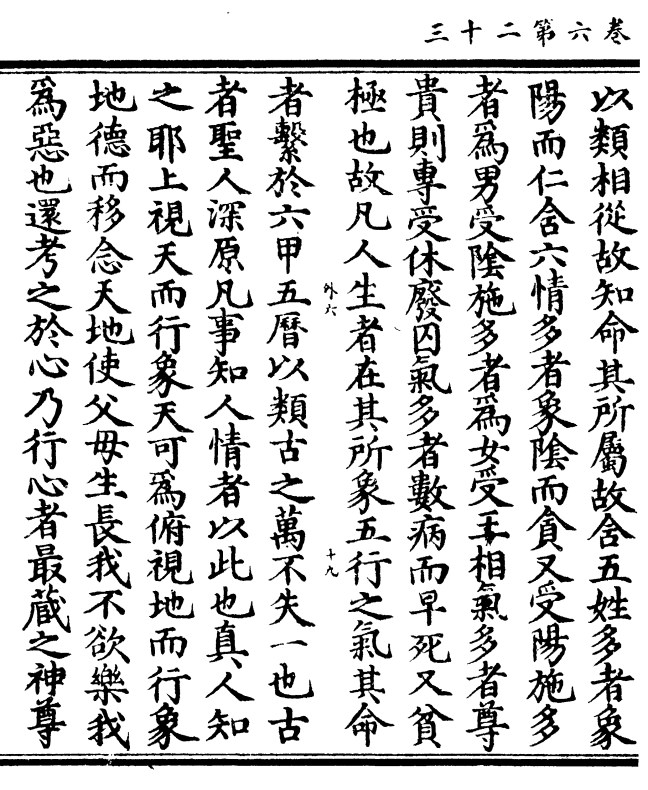 卷六第二十三
以類相從故知命其所屬故含五姓多者象
陽而仁含六情多者象陰而貪又受陽施多
者爲男受陰施多者爲女受王相氣多者尊
貴則專受休廢囚氣多者數病而早死又貧
極也故凡人生者在其所象五行之氣其命
外六
十九
者繫於六甲五曆以類古之萬不失一也古
者聖人深原凡事知人情者以此也真人知
之耶上視天而行象天可爲俯視地而行象
地德而移念天地使父母生長我不欲樂我
爲惡也還考之於心乃行心者最藏之神尊